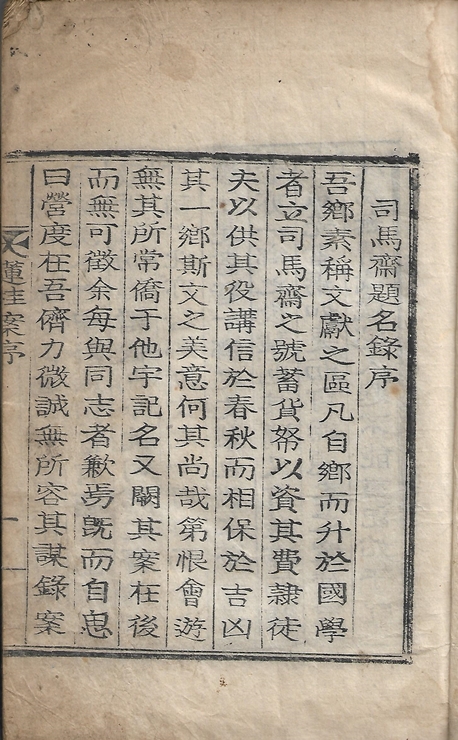 司馬齋題名錄序
吾鄉素稱文獻之區凡自鄉而升於國學
者立司馬齋之號蓄貨帑以資其費隷徒
夫以供其役講信於春秋而相保於吉凶
其一鄉斯文之美意何其尚哉第恨會遊
無其所常僑于他宇記名又闕其案在後
而無可徵余每與同志者歉焉旣而自思
曰營度在吾儕力微誠無所容其謀錄案
蓮桂案序
一